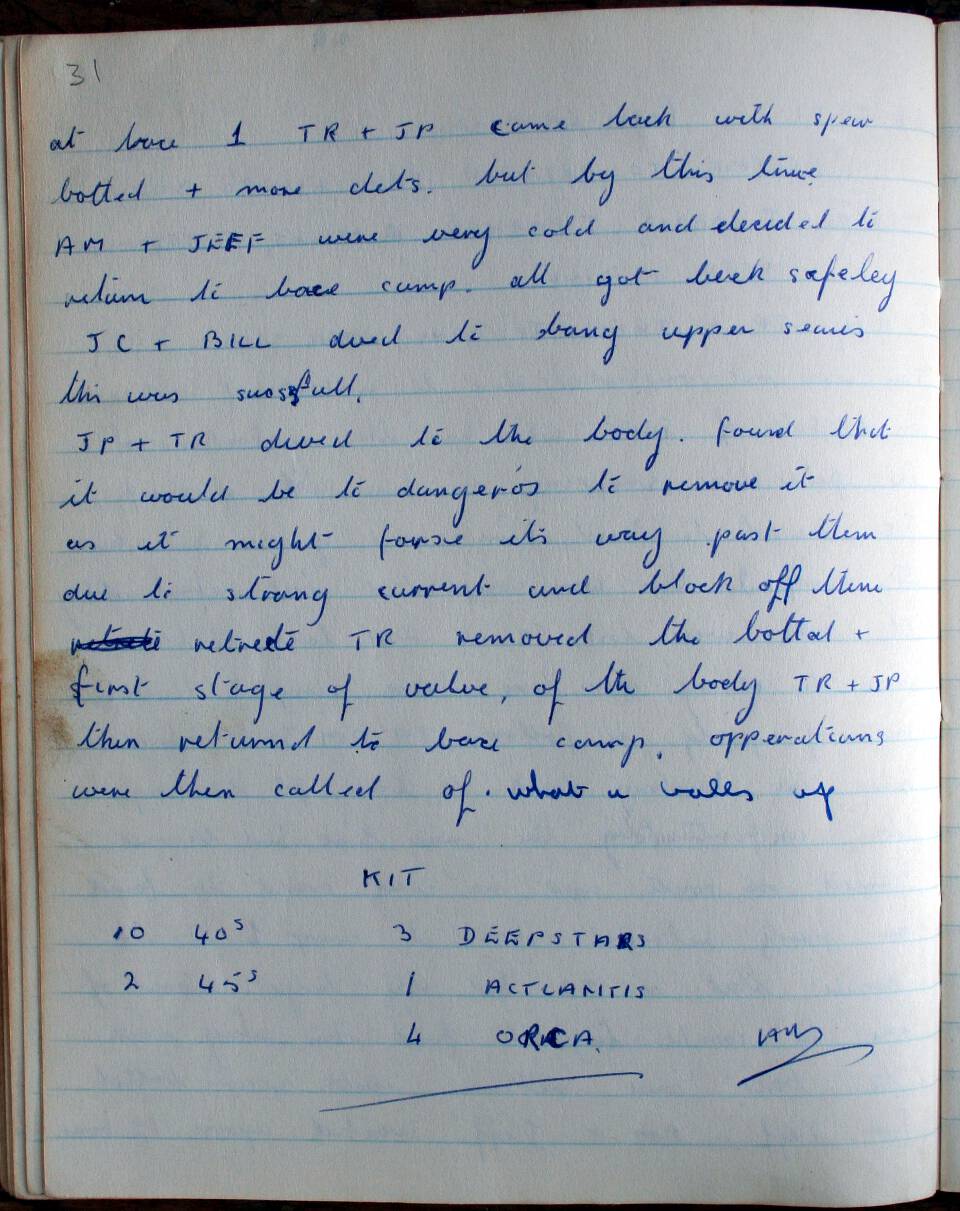 31
at base 1 TR + JP came back with spew
botted + more dets. but by this time
AM + JEEF were very cold and decided to
return to base camp. all got back safeley
JC + BILL dived to bang upper
this was sucsfull.
JP + TR dived to the body. found that
it would be to dangeros to remove it
as it might forse its way past them
due to strong current and block off there
retreete TR removed the bottal +
first stage of valve, of the body TR + JP
then returnd to base camp. opperations
were then called of. what a
KIT
10 40s 3 DEEPSTARS
2 45s 1 ACTLANTIS
4 ORCA.